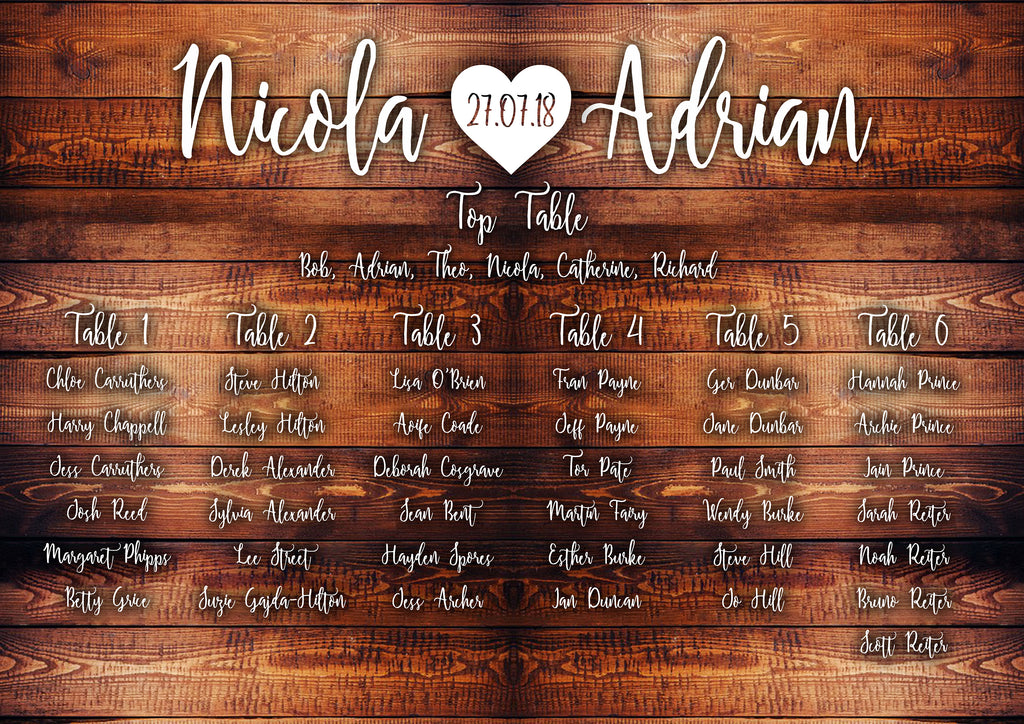 Nicola 27.07.18 Adrian
Top Table
Bob, Adrian, Theo, Nicola, Catherine, Richard
Table 1 Table 2 Table 3 Table 4 Table 5 Table 6
Chloe Carruthers Steve Hilton Lisa O'Brien Fran Payne Ger Dunbar Hannah Prince
Harry Chappell Lesley Hilton Aoife Coade Jeff Payne Jane Dunbar Archie Prince
Jess Carruthers Derek Alexander Deborah Cosgrave Tor Pate Paul Smith Iain Prince
Josh Reed Sylvia Alexander Jean Bent Martin Fairy Wendy Burke Sarah Reiter
Margaret Phipps Lee Street Hayden Spores Esther Burke Steve Hill Noah Reiter
Betty Grice Suzie Gajda-Hilton Jess Archer Ian Duncan Jo Hill Bruno Reiter
Scott Reiter